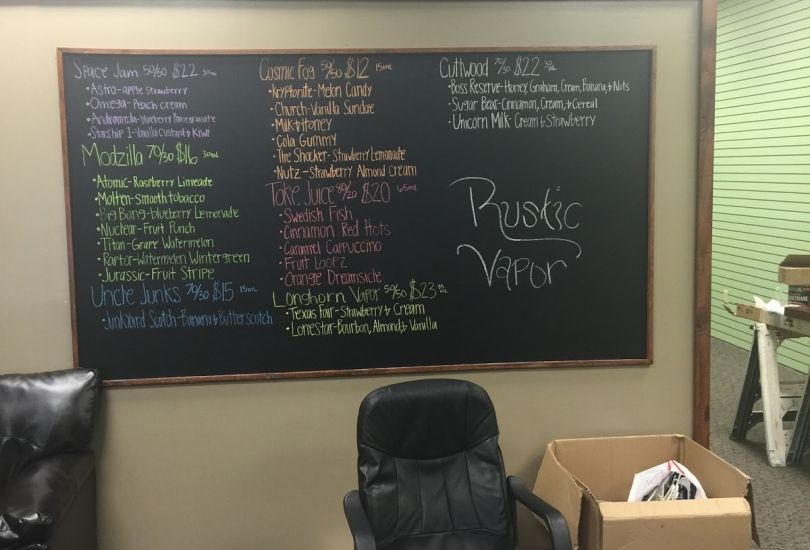 Space Jam 50/50 $22 30ml
• Astro-apple Strawberry
• Omega-Peach Cream
• Andromeda-blueberry Pomegranate
• Starship 1-Vanilla Custard & Kiwi
Modzilla 70/30 $16 30ml
• Atomic-Raspberry Limeade
• Molten-Smooth tobacco
• Big Bang-blueberry Lemonade
• Nuclear-Fruit Punch
• Titan-Grape Watermelon
• Raptor-Watermelon Wintergreen
• Jurassic-Fruit Stripe
Uncle Junks 70/30 $15 15ml
• Junkyard Scotch-Banana & Butterscotch
Cosmic Fog 50/50 $12 15ml
• Kryptonite-Melon Candy
• Church-Vanilla Sundae
• Milk & Honey
• Cola Gummy
• The Shocker-Strawberry Lemonade
• Nutz-Strawberry Almond Cream
Toke Juice 80/20 $20
• Swedish Fish
• Cinnamon Red Hots
• Caramel Cappuccino
• Fruit Loopz
• Orange Dreamsicle
Longhorn Vapor 50/50 $23
• Texas Fair-Strawberry & Cream
• Lonestar-Bourbon, Almond, & Vanilla
Cuttwood 70/30 $22 30ml
• Boss Reserve-Honey, Graham, Cream, Banana, & Nuts
• Sugar Bear-Cinnamon, Cream, & Cereal
• Unicorn Milk-Cream & Strawberry
Rustic
Vapor